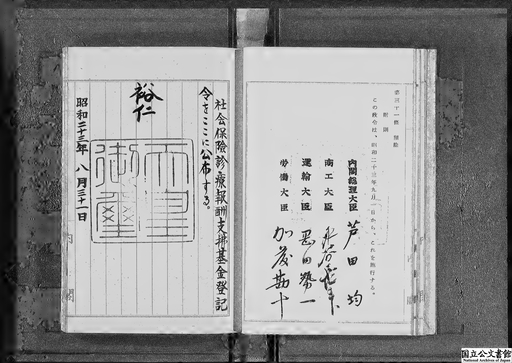 第三十一条 削除
附則
この政令は、昭和二十三年九月一日から、これを施行する。
内閣総理大臣 芦田均
商工大臣
運輸大臣 岡田勢一
労働大臣 加藤勘十
社会保険診療報酬支拂基金登記
令をここに公布する。
裕仁
天皇御璽
昭和二十三年八月三十一日
国立公文書館
National Archives of Japan